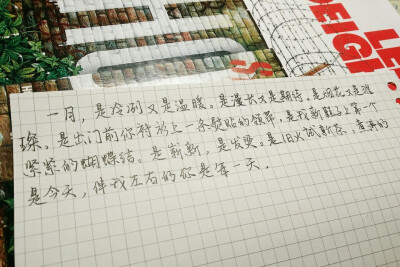 LE
DEIGH
S
一月，是冷冽又是温暖。是漫长又是期待。是烟花又是璀
璨。是出门前你上一条熨贴的领带，是我新鞋上第一个
紧紧的蝴蝶结。是崭新。是发烫。是旧火试新茶，的
是今天，伴我左右的你是每一天．